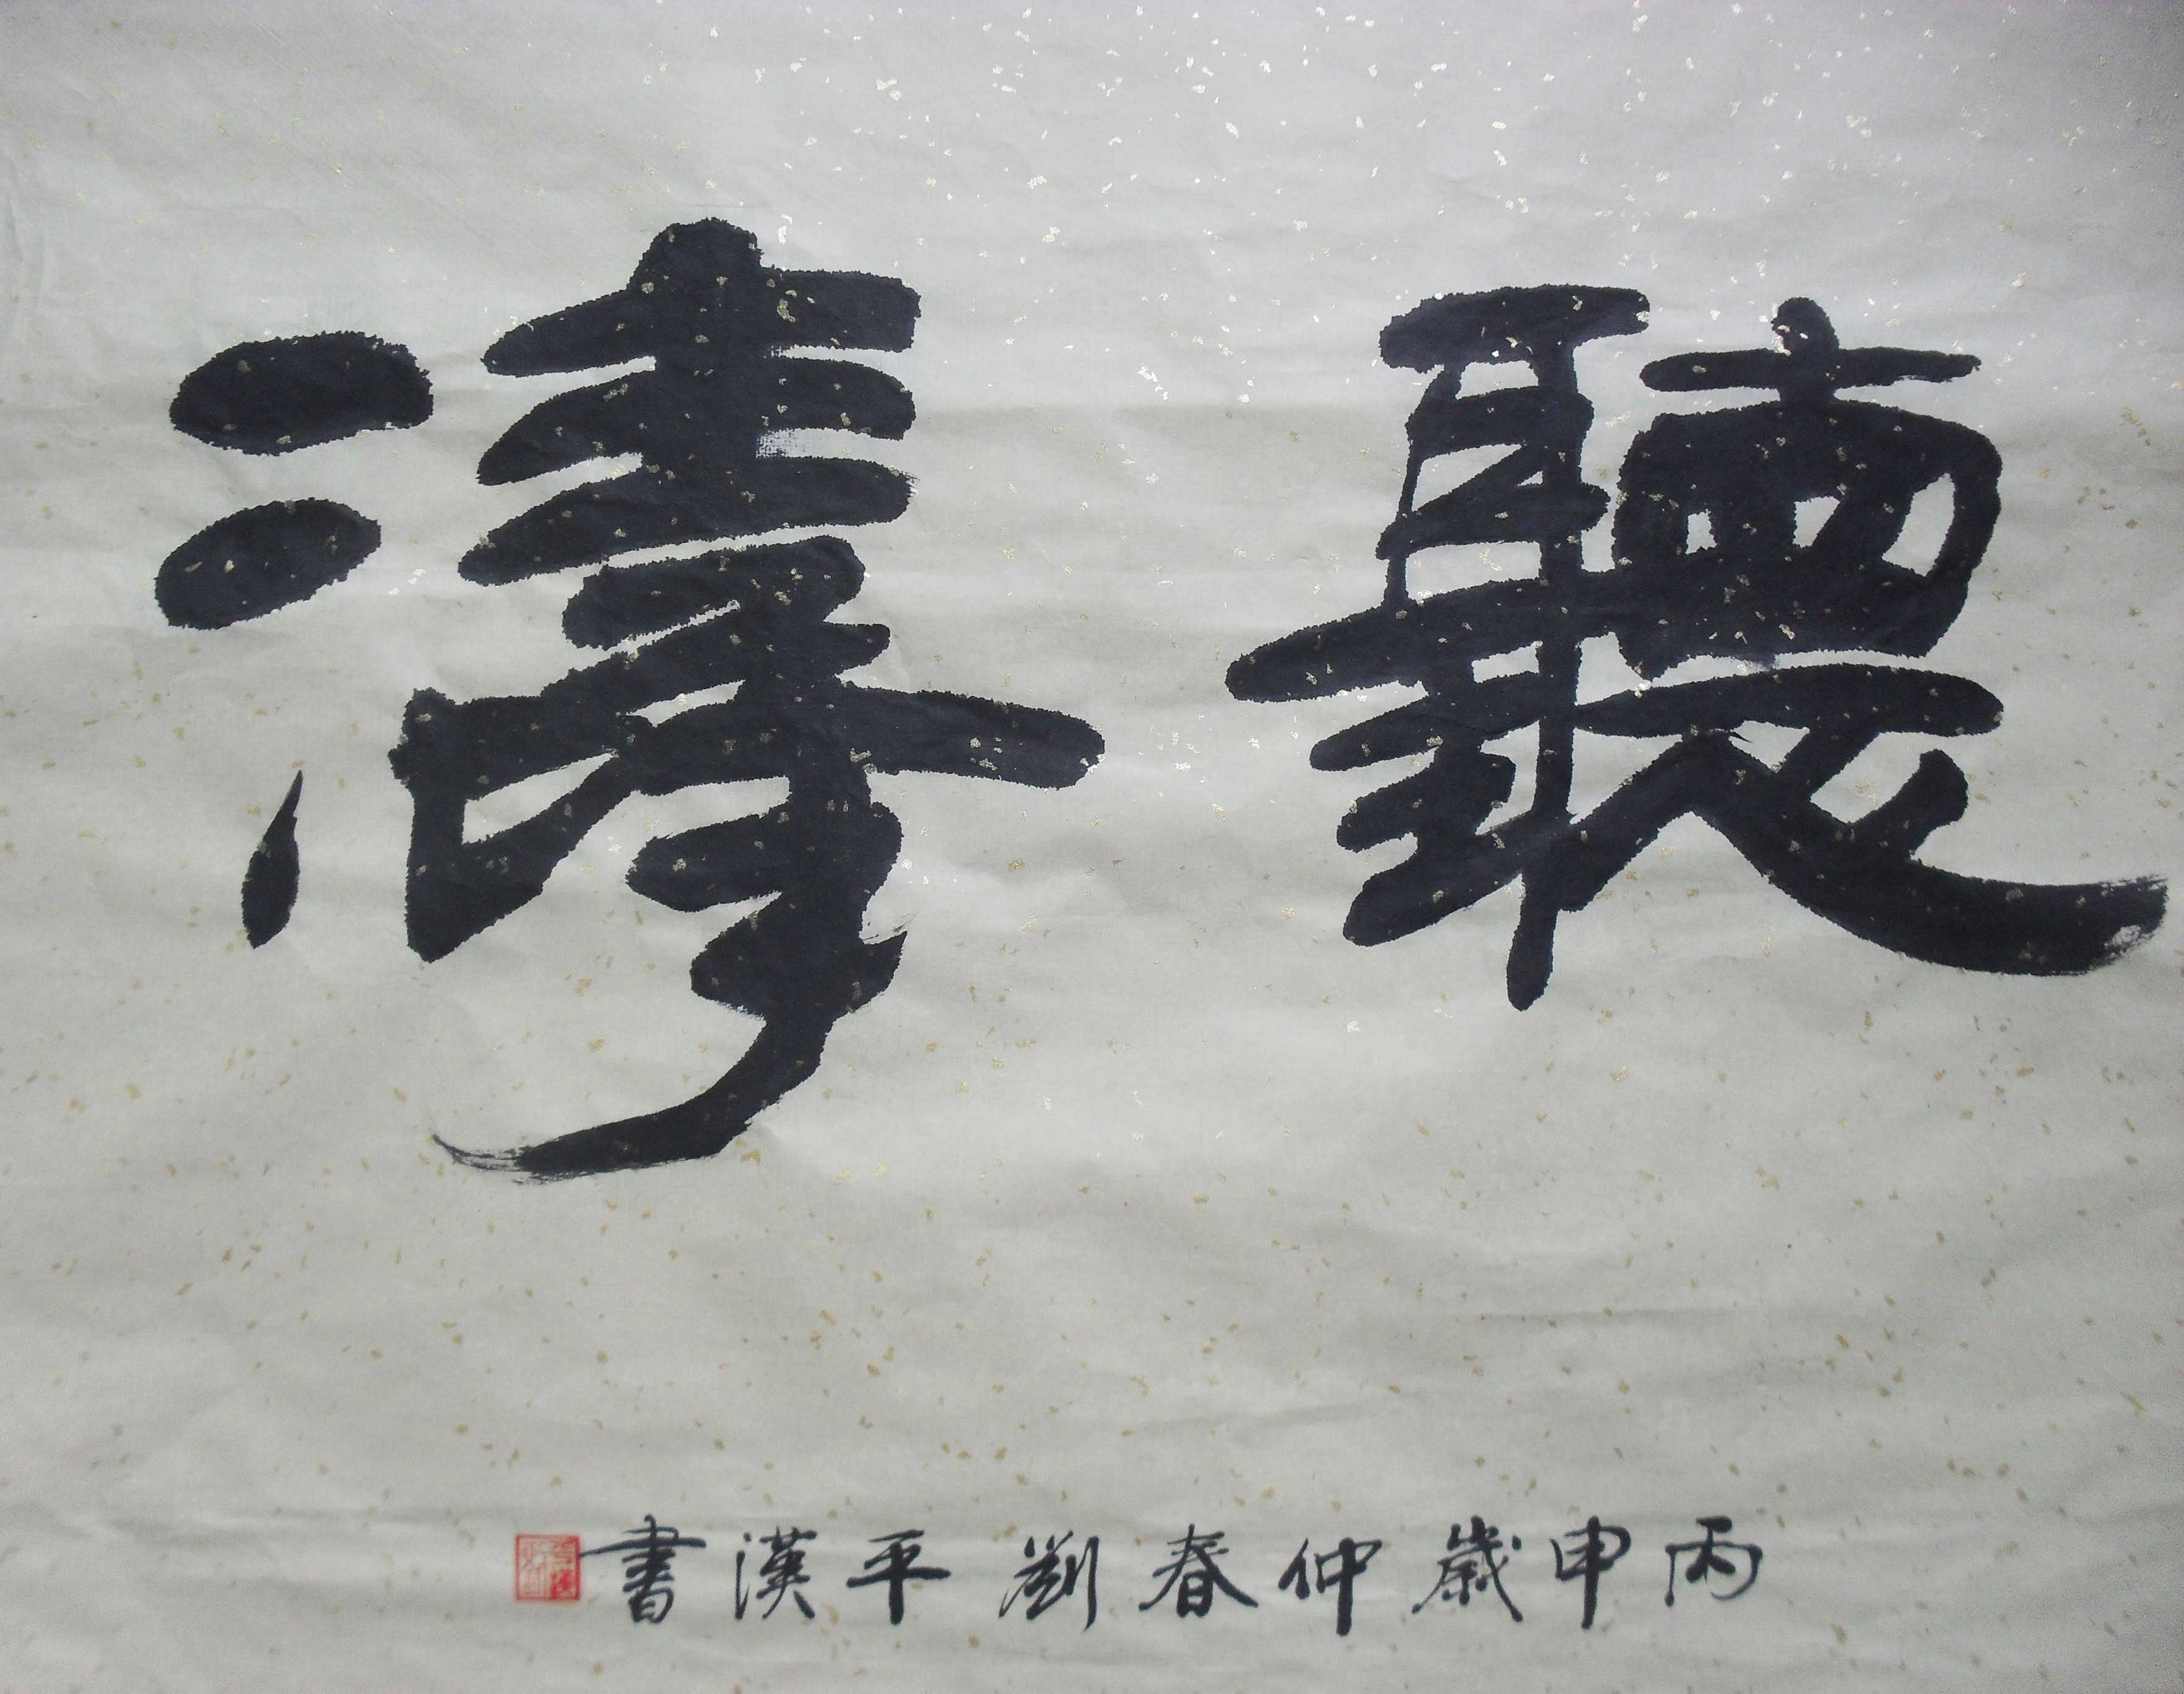 聽濤
丙申歲仲春劉平漢書